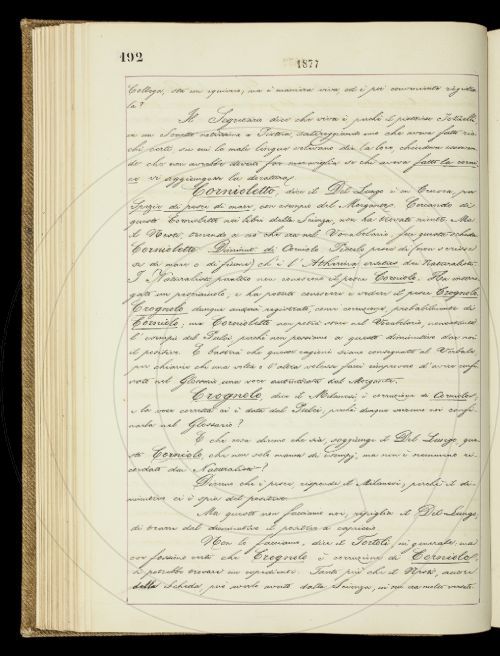 492
1877
Collega, sta un equivoco, ma è maniera viva, ed è poi conveniente registra
la?
Il Segretario dice che viva è, perchè il pistoiese
in un Sonetto satireggiando uno che aveva fatto
certe su cui le male lingue
do che non avrebbe dovuto far meraviglia se chi aveva fatto le corni
ci vi aggiungesse la
Cornioletto, dice il Del Lungo è in Crusca, per
Spezie di pesce di mare, con esempio del Morgante. Cercando di
questo Cornioletto nei libri della Scienza, non ha trovato niente. Ma
il trovando a ciò che era nel Vocabolario fece questa scheda
Cornioletto Diminut. di Corniolo Piccolo pesce di
di mare o di fiume; ch'è l'Atherina dei Naturalisti.
I Naturalisti peraltro non conoscono il pesce Corniolo. Ha
gato un pesciaiuolo, e ha potuto conoscere e vedere il pesce Crognolo
Crognolo dunque andrà registrato, come corruzione probabilmente di
Corniolo, ma Cornioletto non potrà stare nel Vocabolario, nonostante
l'esempio del Pulci, perchè non possiamo da questo diminutivo dar noi
il positivo. E basterà che queste ragioni siano consegnate al Verbale
per chiarire chi una volta o l'altra volesse farci rimprovero d'aver confi
nato nel Glossario una voce autenticata dal Morgante.
Crognolo dice il Milanesi è corruzione di Corniolo,
e la voce corretta ci è data dal Pulci, perchè dunque vorremo noi confi
narla nel Glossario?
E che cosa diremo che sia, soggiunge il Del Lungo, que
sto Corniolo, che non solo manca di esempj, ma non è nemmeno ri
cordato dai Naturalisti?
Diremo che è pesce risponde il Milanesi, perchè il di
minutivo ci è spia del positivo.
Ma questo non facciamo noi, ripiglia il Del Lungo
di trarre dal diminutivo il positivo a capriccio.
Non lo facciamo, dice il Tortoli, in generale, ma
con fossimo certi che Crognolo è corruzione di Corniolo,
si potrebbe trovare un espediente. Tanto più che il autore
della scheda, può averlo avuto dalla Scienza, in cui era molto versato.